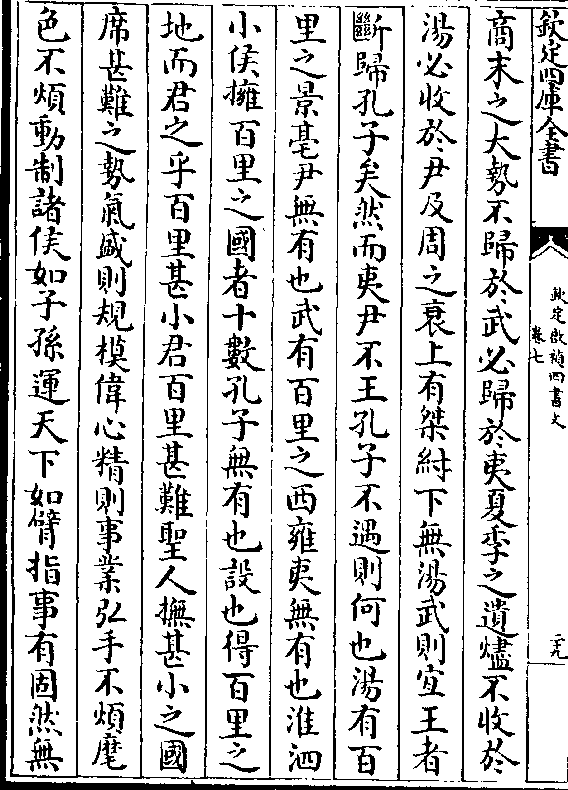 欽定四庫全書
欽定啟禎四書文
卷七
二十九
商末之大勢不歸於武必歸於夷夏季之遺燼不收於
湯必收於尹及周之衰上有桀紂下無湯武則宜王者
斷歸孔子矣然而夷尹不王孔子不遇則何也湯有百
里之景亳尹無有也武有百里之西雍夷無有也淮泗
小侯擁百里之國者十數孔子無有也設也得百里之
地而君之乎百里甚小君百里甚難聖人撫甚小之國
席甚難之勢氣盛則規模偉心精則事業弘手不煩麾
色不煩動制諸侯如子孫運天下如臂指事有固然無